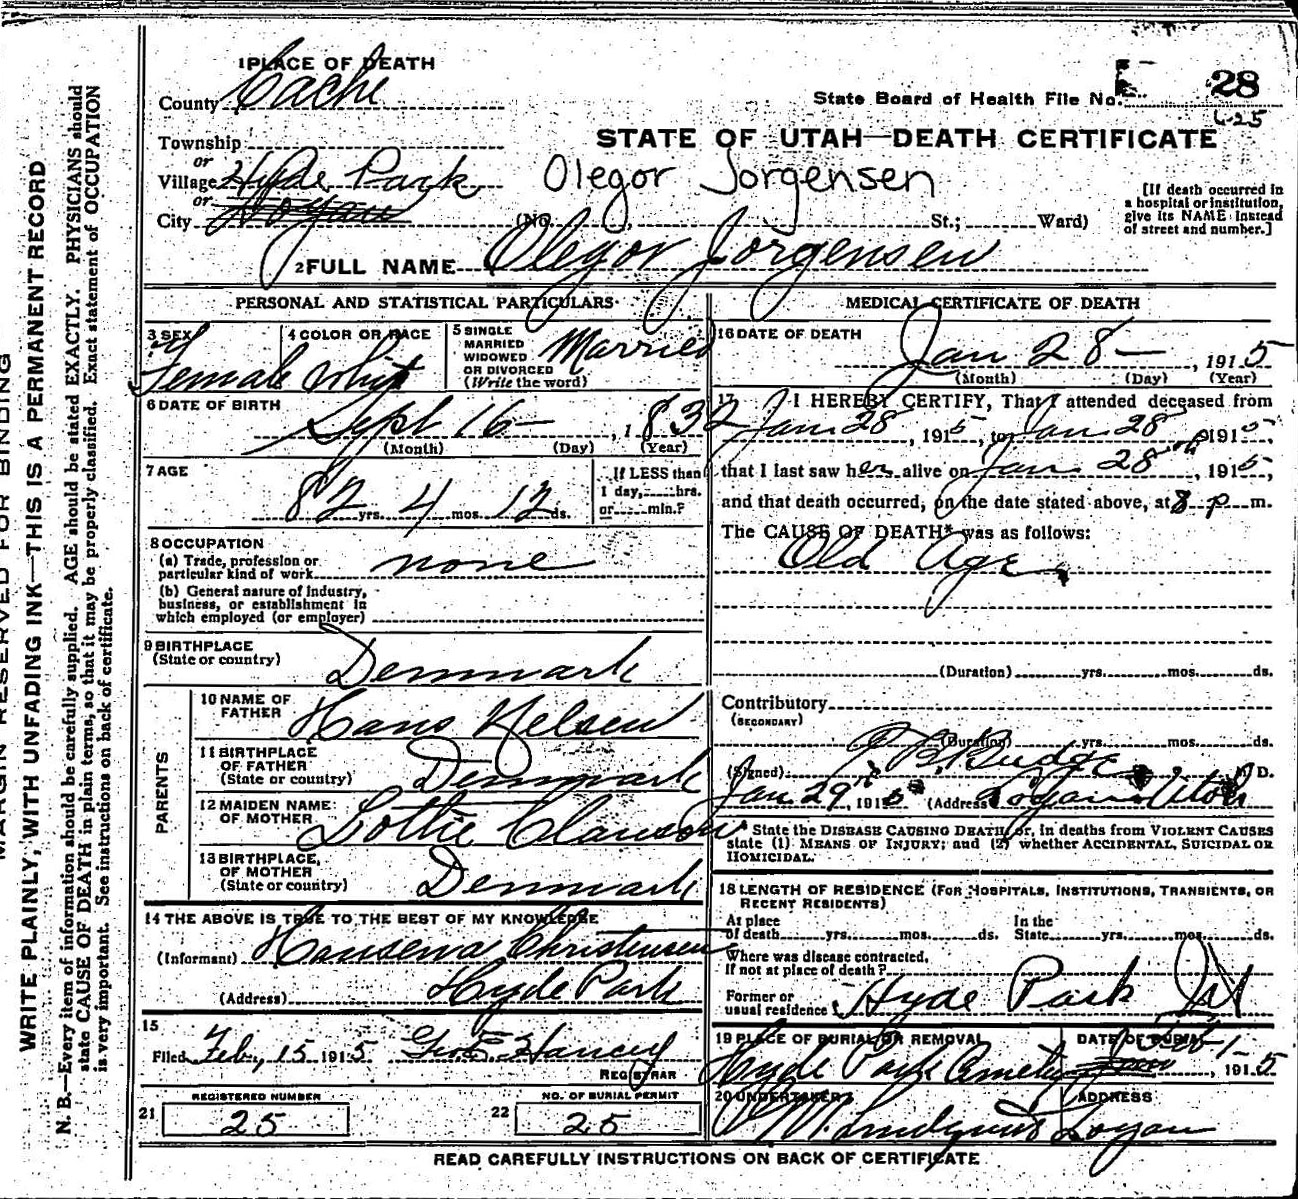 MARGIN RESERVED FOR BINDING
WRITE PLAINLY, WITH UNFADING INK—THIS IS A PERMANENT RECORD
N. B.—Every item of information should be carefully supplied. AGE should be stated EXACTLY. PHYSICIANS should
state CAUSE OF DEATH in plain terms, so that it may be properly classified. Exact statement of OCCUPATION
is very important. See instructions on back of certificate.
1 PLACE OF DEATH
County Cache
State Board of Health File No. 28
6-25
Township
or
Village Hyde Park
or
City Logan
STATE OF UTAH—DEATH CERTIFICATE
Olegor Jorgensen
(No. St.; Ward)
[If death occurred in
a hospital or institution,
give its NAME instead
of street and number.]
2 FULL NAME Olegor Jorgensen
PERSONAL AND STATISTICAL PARTICULARS
3 SEX
Female
4 COLOR OR RACE
Whit
5 SINGLE
MARRIED
WIDOWED
OR DIVORCED
(Write the word)
Married
6 DATE OF BIRTH
Sept 16— , 1832
(Month) (Day) (Year)
7 AGE
82 yrs. 4 mos. 12 ds.
If LESS than
1 day, hrs.
or min.?
8 OCCUPATION
(a) Trade, profession or
particular kind of work none
(b) General nature of industry,
business, or establishment in
which employed (or employer)
9 BIRTHPLACE
(State or country) Denmark
PARENTS
10 NAME OF
FATHER Hans Nelsen
11 BIRTHPLACE
OF FATHER
(State or country) Denmark
12 MAIDEN NAME
OF MOTHER Lottie Clauson
13 BIRTHPLACE
OF MOTHER
(State or country) Denmark
14 THE ABOVE IS TRUE TO THE BEST OF MY KNOWLEDGE
(Informant) Hansena Christensen
(Address) Hyde Park
15
Filed Feb, 15 1915
REGISTRAR
21 REGISTERED NUMBER
25
22 NO. OF BURIAL PERMIT
25
MEDICAL CERTIFICATE OF DEATH
16 DATE OF DEATH
Jan 28— , 1915
(Month) (Day) (Year)
17 I HEREBY CERTIFY, That I attended deceased from
Jan 28 , 1915, to Jan 28 1915,
that I last saw her alive on Jan 28th , 1915,
and that death occurred, on the date stated above, at 8 p m.
The CAUSE OF DEATH* was as follows:
Old Age
(Duration) yrs. mos. ds.
Contributory
(SECONDARY)
(Duration) yrs. mos. ds.
(Signed) Budge M D.
Jan 29 , 1915 (Address) Logan Utah
* State the DISEASE CAUSING DEATH, or, in deaths from VIOLENT CAUSES
state (1) MEANS OF INJURY; and (2) whether ACCIDENTAL, SUICIDAL OR
HOMICIDAL.
18 LENGTH OF RESIDENCE (FOR HOSPITALS, INSTITUTIONS, TRANSIENTS, OR
RECENT RESIDENTS)
At place
of death yrs. mos. ds.
In the
State yrs. mos. ds.
Where was disease contracted,
if not at place of death?
Former or
usual residence Hyde Park Ut
19 PLACE OF BURIAL OR REMOVAL
Hyde Park
DATE OF BURIAL
Feb 1— , 1915
20 UNDERTAKER
Lindquist
ADDRESS
Logan
READ CAREFULLY INSTRUCTIONS ON BACK OF CERTIFICATE